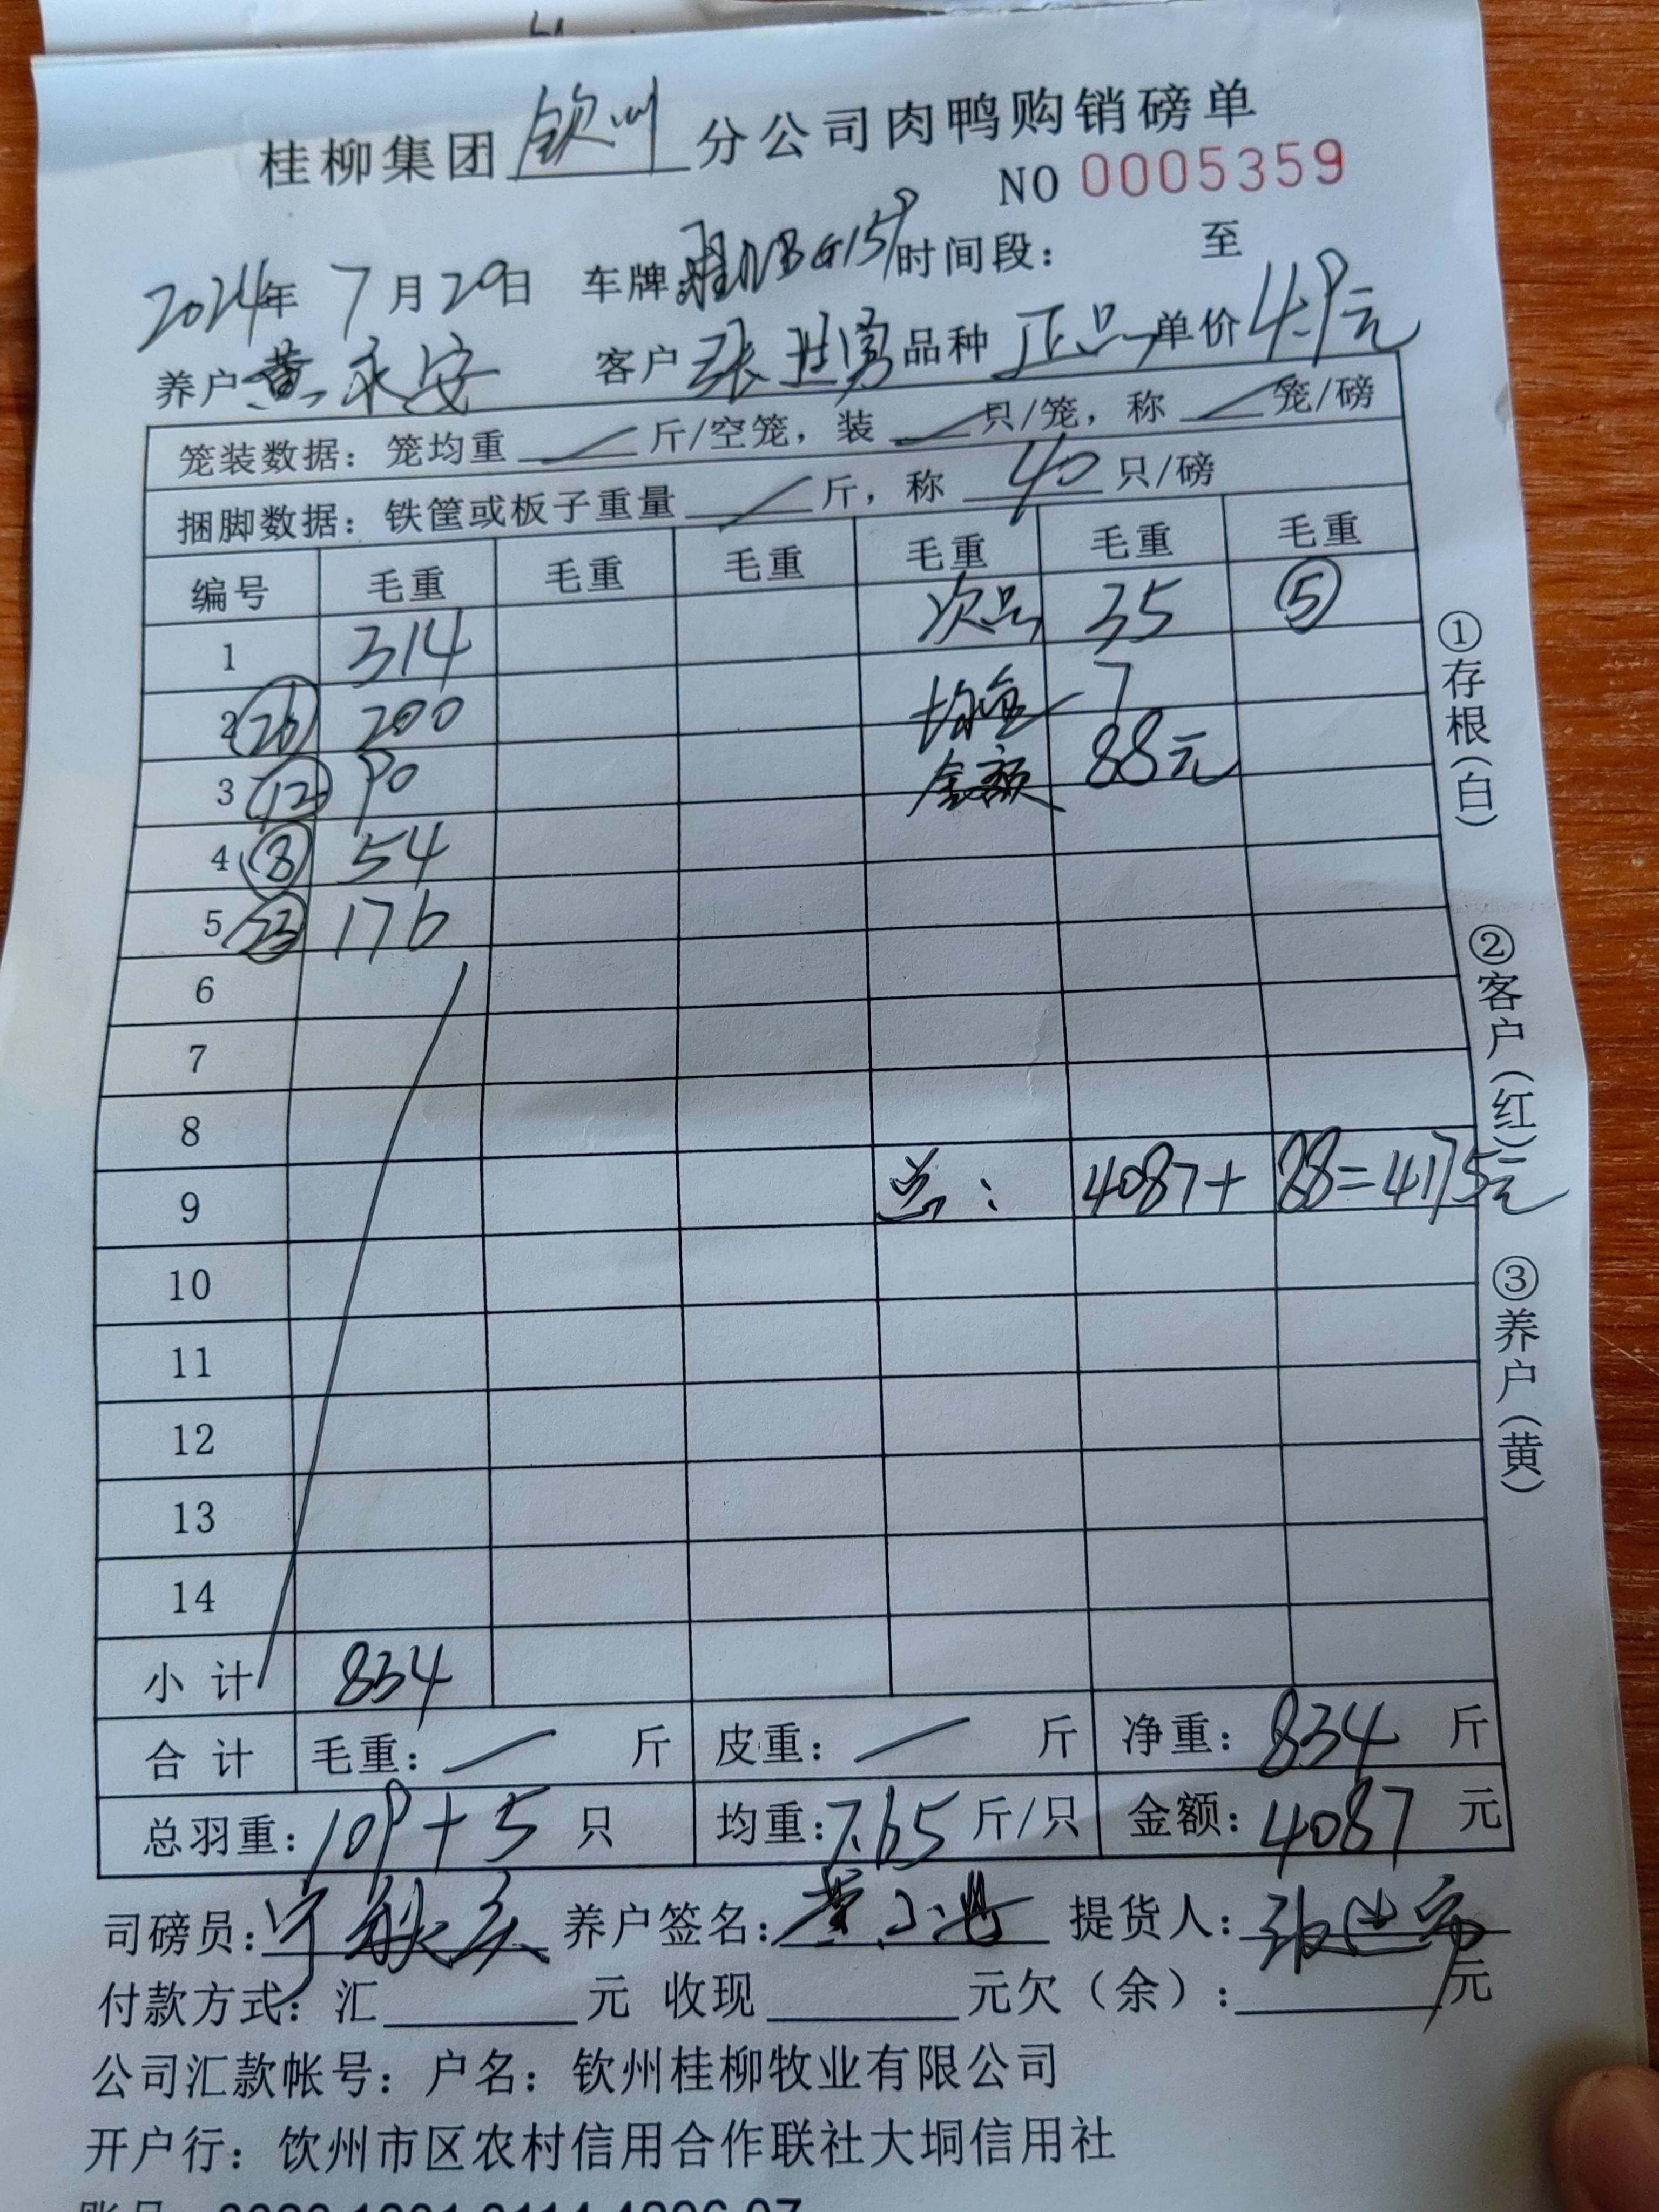 桂柳集团 钦州 分公司肉鸭购销磅单
NO 0005359
2024年 7月29日 车牌 时间段： 至
养户 黄永安 客户 张 品种 正品 单价 4.9元
笼装数据：笼均重 斤/空笼，装 只/笼，称 笼/磅
捆脚数据：铁筐或板子重量 斤，称 40 只/磅
编号 毛重 毛重 毛重 毛重 毛重 毛重
1 314 次品 35 ⑤
2 (26) 200 均重 7
3 (12) 90 金额 88元
4 (8) 54
5 (23) 176
6
7
8
9 总： 4087+ 88=4175元
10
11
12
13
14
小计 834
合计 毛重： 斤 皮重： 斤 净重：834 斤
总羽重：109+5 只 均重：7.65 斤/只 金额：4087 元
司磅员： 养户签名： 提货人：
付款方式：汇 元 收现 元欠（余）： 元
公司汇款帐号：户名：钦州桂柳牧业有限公司
开户行：饮州市区农村信用合作联社大垌信用社
①存根（白）
②客户（红）
③养户（黄）